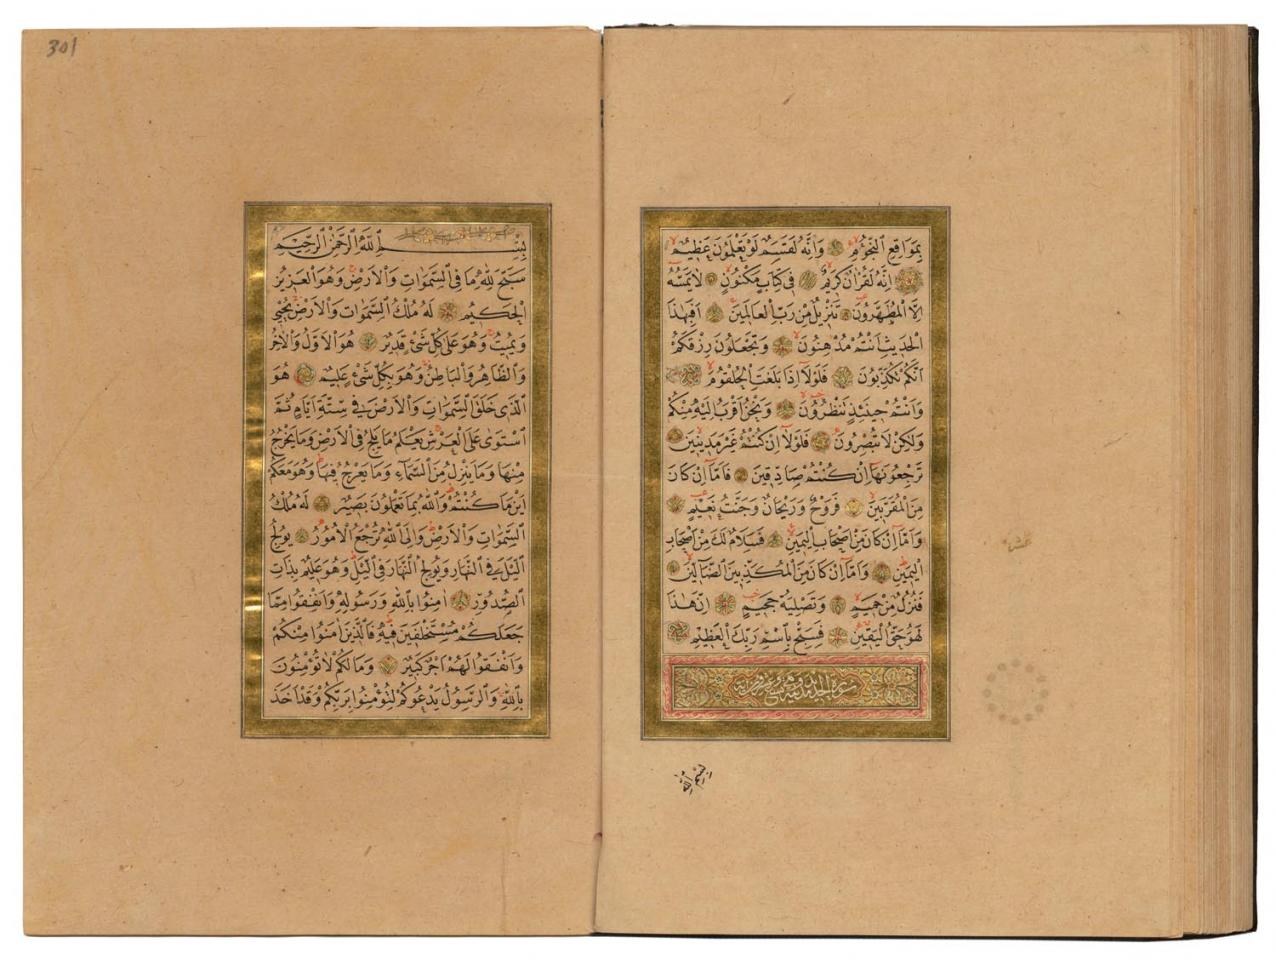 بِمَوَاقِعِ النُّجُومِ وَاِنَّهُ لَقَسَمٌ لَوْ تَعْلَمُونَ عَظِيمٌ
اِنَّهُ لَقُرْاٰنٌ كَرِيمٌ فِى كِتَابٍ مَكْنُونٍ لَا يَمَسُّهُ
اِلَّا الْمُطَهَّرُونَ تَنْزِيلٌ مِنْ رَبِّ الْعَالَمِينَ اَفَبِهٰذَا
الْحَدِيثِ اَنْتُمْ مُدْهِنُونَ وَتَجْعَلُونَ رِزْقَكُمْ
اَنَّكُمْ تُكَذِّبُونَ فَلَوْلَا اِذَا بَلَغَتِ الْحُلْقُومَ
وَاَنْتُمْ حِينَئِذٍ تَنْظُرُونَ وَنَحْنُ اَقْرَبُ اِلَيْهِ مِنْكُمْ
وَلٰكِنْ لَا تُبْصِرُونَ فَلَوْلَا اِنْ كُنْتُمْ غَيْرَ مَدِينِينَ
تَرْجِعُونَهَا اِنْ كُنْتُمْ صَادِقِينَ فَاَمَّا اِنْ كَانَ
مِنَ الْمُقَرَّبِينَ فَرَوْحٌ وَرَيْحَانٌ وَجَنَّتُ نَعِيمٍ
وَاَمَّا اِنْ كَانَ مِنْ اَصْحَابِ الْيَمِينِ فَسَلَامٌ لَكَ مِنْ اَصْحَابِ
الْيَمِينِ وَاَمَّا اِنْ كَانَ مِنَ الْمُكَذِّبِينَ الضَّالِّينَ
فَنُزُلٌ مِنْ حَمِيمٍ وَتَصْلِيَةُ جَحِيمٍ اِنَّ هٰذَا
لَهُوَ حَقُّ الْيَقِينِ فَسَبِّحْ بِاسْمِ رَبِّكَ الْعَظِيمِ
سورة الحديد
بِسْمِ اللّٰهِ
301
بِسْمِ اللّٰهِ الرَّحْمٰنِ الرَّحِيمِ
سَبَّحَ لِلّٰهِ مَا فِى السَّمٰوَاتِ وَالْاَرْضِ وَهُوَ الْعَزِيزُ
الْحَكِيمُ لَهُ مُلْكُ السَّمٰوَاتِ وَالْاَرْضِ يُحْيِى
وَيُمِيتُ وَهُوَ عَلٰى كُلِّ شَىْءٍ قَدِيرٌ هُوَ الْاَوَّلُ وَالْاٰخِرُ
وَالظَّاهِرُ وَالْبَاطِنُ وَهُوَ بِكُلِّ شَىْءٍ عَلِيمٌ هُوَ
الَّذِى خَلَقَ السَّمٰوَاتِ وَالْاَرْضَ فِى سِتَّةِ اَيَّامٍ ثُمَّ
اسْتَوٰى عَلَى الْعَرْشِ يَعْلَمُ مَا يَلِجُ فِى الْاَرْضِ وَمَا يَخْرُجُ
مِنْهَا وَمَا يَنْزِلُ مِنَ السَّمَاءِ وَمَا يَعْرُجُ فِيهَا وَهُوَ مَعَكُمْ
اَيْنَ مَا كُنْتُمْ وَاللّٰهُ بِمَا تَعْمَلُونَ بَصِيرٌ لَهُ مُلْكُ
السَّمٰوَاتِ وَالْاَرْضِ وَاِلَى اللّٰهِ تُرْجَعُ الْاُمُورُ يُولِجُ
الَّيْلَ فِى النَّهَارِ وَيُولِجُ النَّهَارَ فِى الَّيْلِ وَهُوَ عَلِيمٌ بِذَاتِ
الصُّدُورِ اٰمِنُوا بِاللّٰهِ وَرَسُولِهِ وَاَنْفِقُوا مِمَّا
جَعَلَكُمْ مُسْتَخْلَفِينَ فِيهِ فَالَّذِينَ اٰمَنُوا مِنْكُمْ
وَاَنْفَقُوا لَهُمْ اَجْرٌ كَبِيرٌ وَمَا لَكُمْ لَا تُؤْمِنُونَ
بِاللّٰهِ وَالرَّسُولُ يَدْعُوكُمْ لِتُؤْمِنُوا بِرَبِّكُمْ وَقَدْ اَخَذَ